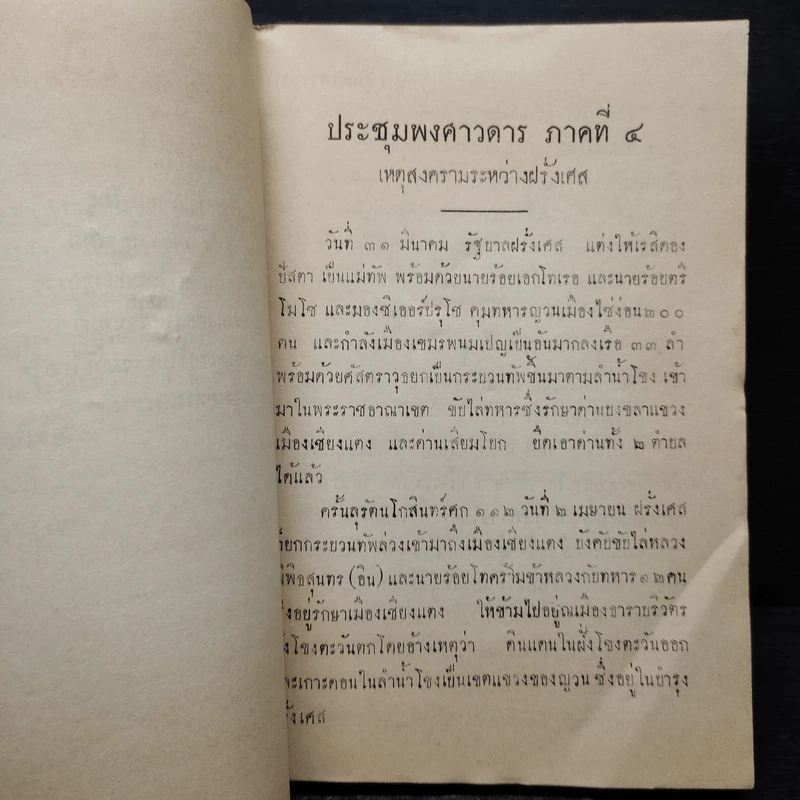 ประชุมพงศาวดาร ภาคที่ ๔
เหตุสงครามระหว่างฝรั่งเศส
วันที่ ๓๑ มีนาคม รัฐบาลฝรั่งเศส แต่งให้เรสิดอง
บัสตา เป็นแม่ทัพ พร้อมด้วยนายร้อยเอกโทเรอ และนายร้อยตรี
โมโซ และมองซิเออร์ปรุโซ คุมทหารญวนเมืองไซ่ง่อน๒๐๐
คน และกำลังเมืองเขมรพนมเปญเป็นอันมากลงเรือ ๓๓ ลำ
พร้อมด้วยศัสตราวุธยกเป็นกระบวนทัพขึ้นมาตามลำน้ำโขง เข้า
มาในพระราชอาณาเขต ขับไล่ทหารซึ่งรักษาด่านบงขลาแขวง
เมืองเชียงแตง และด่านเสียมโบก ยึดเอาด่านทั้ง ๒ ตำบล
ได้แล้ว
ครั้นลุรัตนโกสินทร์ศก ๑๑๒ วันที่ ๒ เมษายน ฝรั่งเศส
ก็ยกกระบวนทัพล่วงเข้ามาถึงเมืองเชียงแตง บังคับขับไล่หลวง
พิพิธสุนทร (อิน) และนายร้อยโทคร้ามข้าหลวงกับทหาร๑๒คน
ซึ่งอยู่รักษาเมืองเชียงแตง ให้ข้ามไปอยู่ณเมืองธาราบริวัตร
ฝั่งโขงตะวันตกโดยอ้างเหตุว่า ดินแดนในฝั่งโขงตะวันออก
และเกาะดอนในลำน้ำโขงเป็นเขตแขวงของญวน ซึ่งอยู่ในบำรุง
ฝรั่งเศส